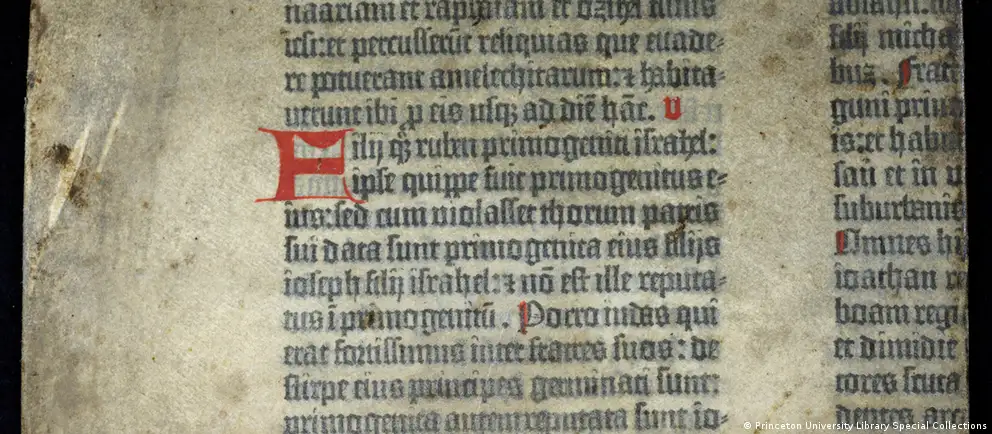 naariam et raphaiam et ozihel filios
iesi: et percusserūt reliquias que euade-
re potuerant amelechitarum: ⁊ habita-
uerunt ibi p̄ eis usq; ad diē hāc. V
Filij q̄ꝫ ruben primogeniti israhel:
ipse quippe fuit primogenitus e-
ius: sed cum violasset thorum patris
sui data sunt primogenita eius filijs
ioseph filij israhel: ⁊ nō est ille reputa-
tus ī primogenitū. Porro iudas qui
erat fortissimus inter fratres suos: de
stirpe eius principes germinati sunt:
primogenita autem reputata sunt io-
filij micha
buz. Frat
guni prin
is: et habi
san et in u
suburbani
Omnes hi
ioathan r
boam regi
et dimidie
tores scuta
dentes arc
© Princeton University Library Special Collections